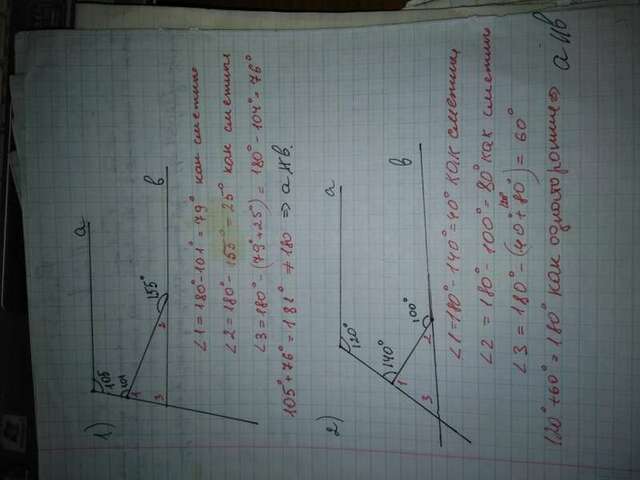 1)
a
105
101
1
155°
2
3
b
∠1 = 180° - 101° = 79° как смежные
∠2 = 180° - 155° = 25° как смежные
∠3 = 180° - (79° + 25°) = 180° - 104° = 76°
105° + 76° = 181° ≠ 180 ⇒ a ∦ b.
2)
a
120°
140°
1
100°
2
3
b
∠1 = 180° - 140° = 40° как смежные
∠2 = 180° - 100° = 80° как смежные
∠3 = 180° - (40° + 80°) = 60°
120° + 60° = 180° как односторонние ⇒ a || b